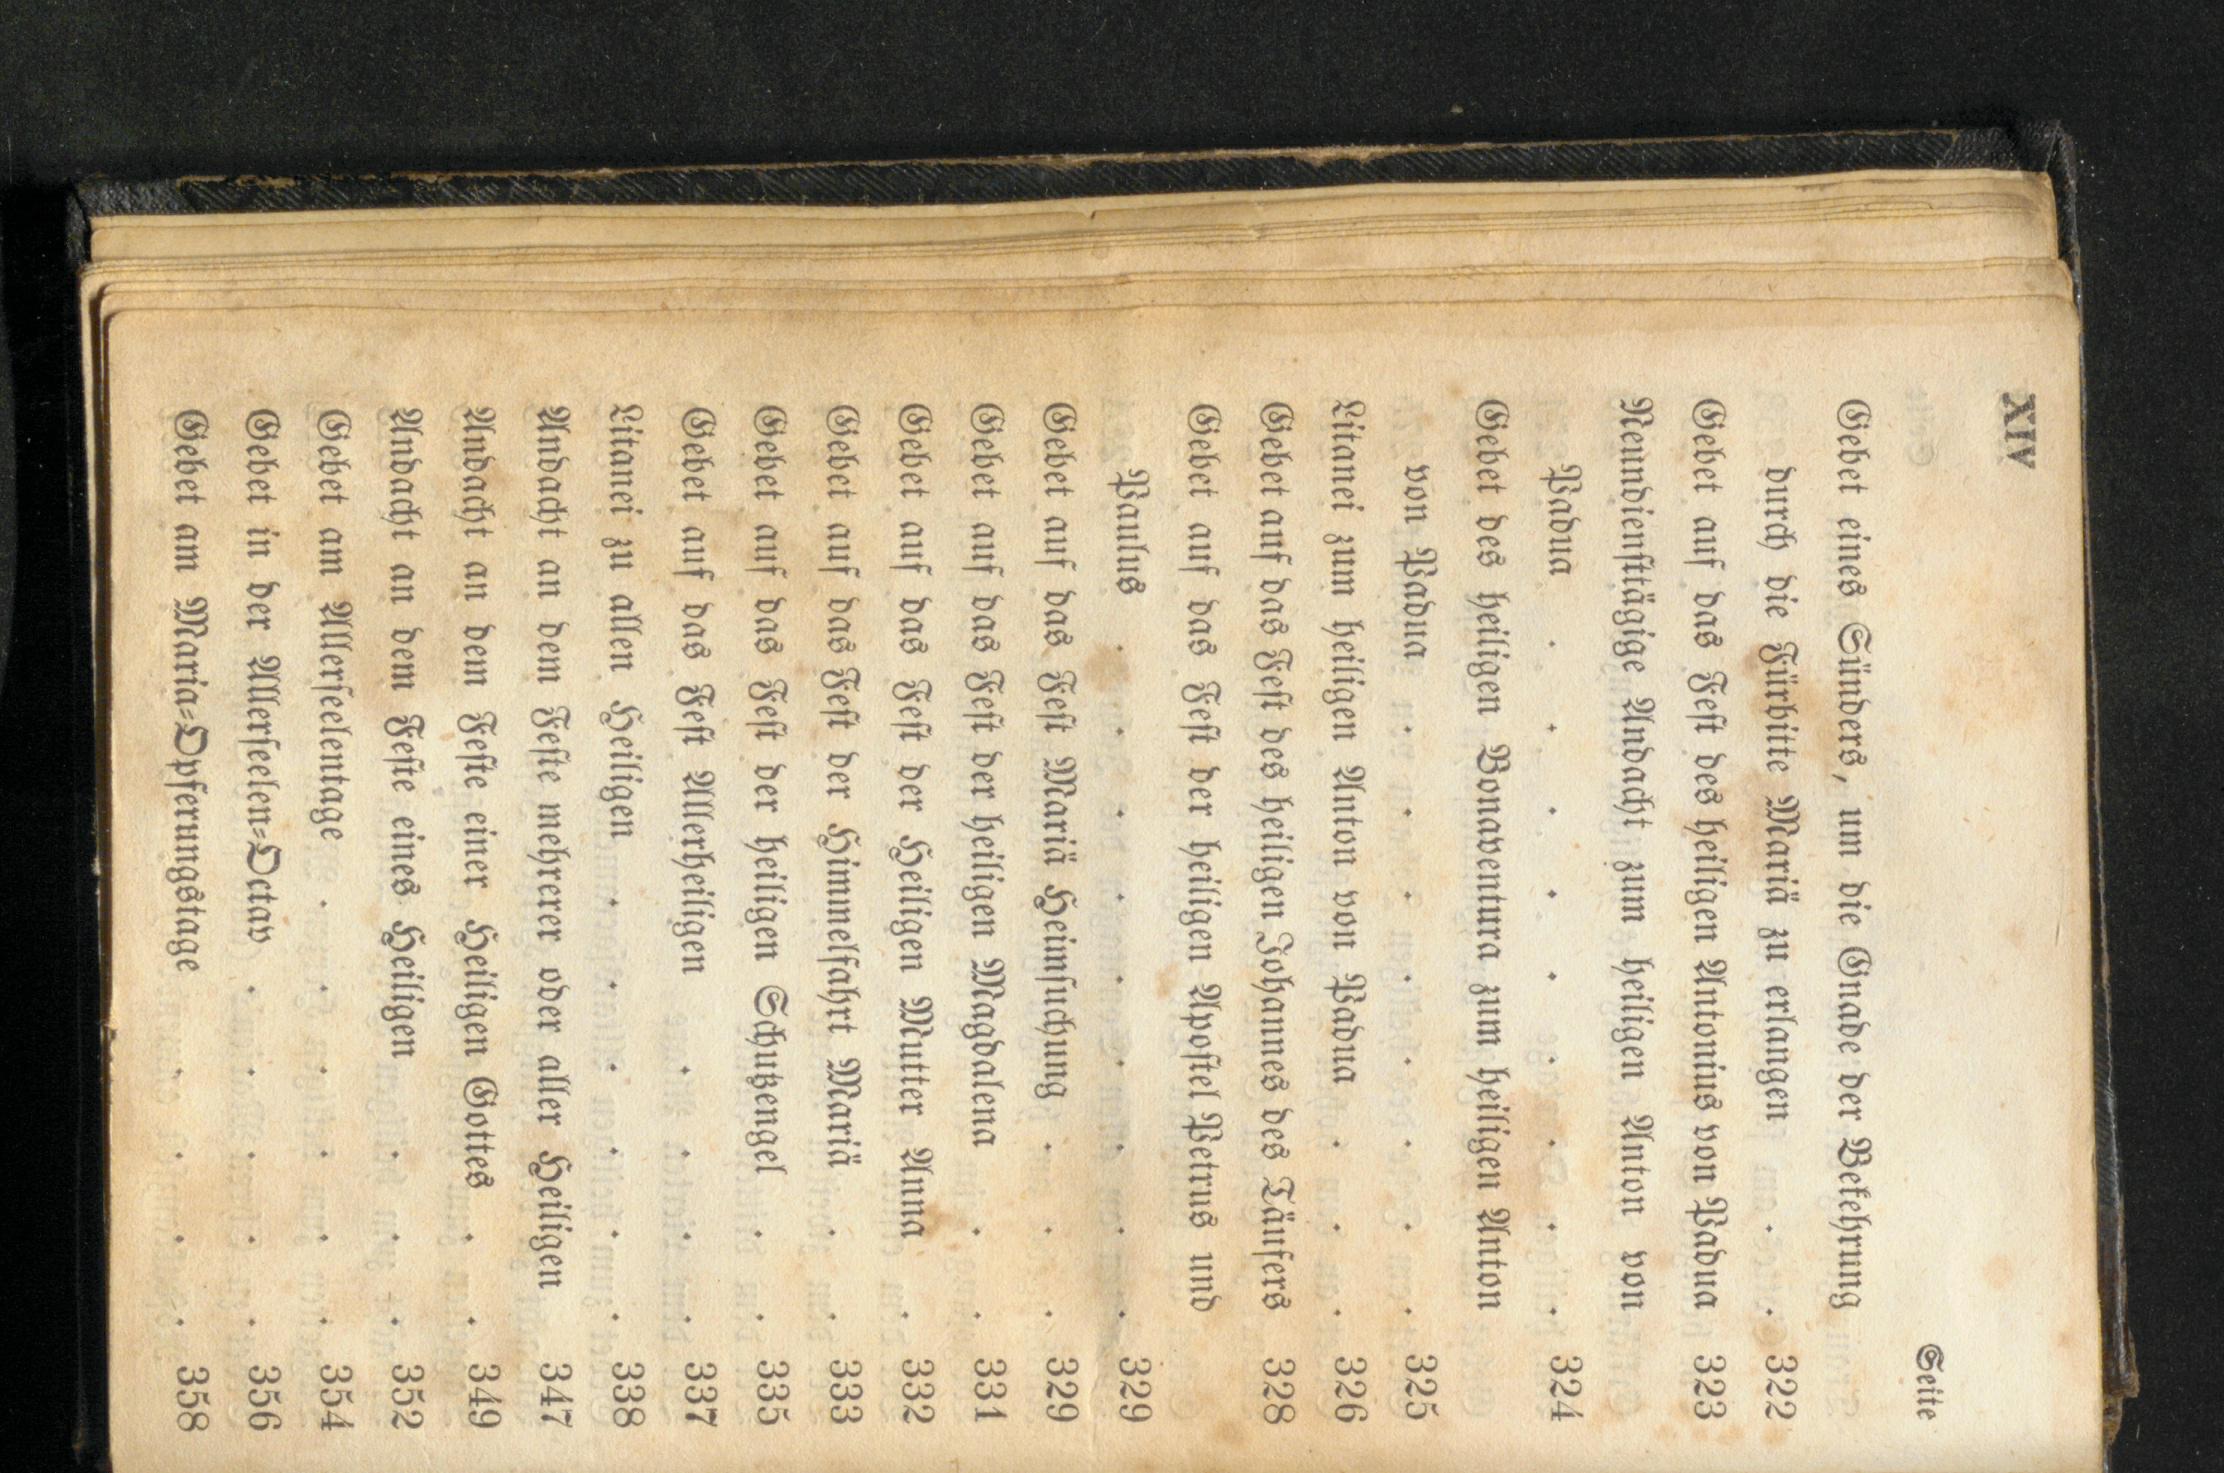 XIV
Seite
Gebet eines Sünders, um die Gnade der Bekehrung
durch die Fürbitte Mariä zu erlangen . . 322
Gebet auf das Fest des heiligen Antonius von Padua 323
Neundienſttägige Andacht zum heiligen Anton von
Padua . . . . . . . . . 324
Gebet des heiligen Bonaventura zum heiligen Anton
von Padua . . . . . . . . 325
Litanei zum heiligen Anton von Padua . . . 326
Gebet auf das Feſt des heiligen Johannes des Täufers 328
Gebet auf das Feſt der heiligen Apoſtel Petrus und
Paulus . . . . . . . . . 329
Gebet auf das Feſt Mariä Heimſuchung . . . 329
Gebet auf das Feſt der heiligen Magdalena . . 331
Gebet auf das Feſt der Heiligen Mutter Anna . 332
Gebet auf das Feſt der Himmelfahrt Mariä . . 333
Gebet auf das Feſt der heiligen Schutzengel . . 335
Gebet auf das Feſt Allerheiligen . . . . 337
Litanei zu allen Heiligen . . . . . . 338
Andacht an dem Feſte mehrerer oder aller Heiligen 347
Andacht an dem Feſte einer Heiligen Gottes . . 349
Andacht an dem Feſte eines Heiligen . . . 352
Gebet am Allerſeelentage . . . . . . 354
Gebet in der Allerſeelen-Octav . . . . . 356
Gebet am Maria-Opferungstage . . . . 358